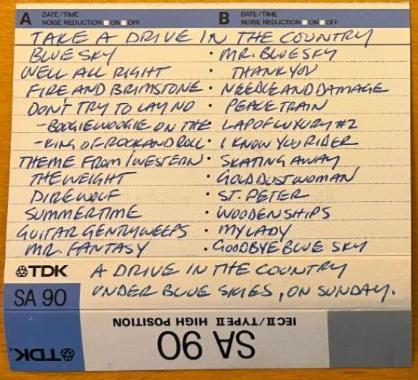 A DATE/TIME NOISE REDUCTION ON OFF B DATE/TIME NOISE REDUCTION ON OFF
TAKE A DRIVE IN THE COUNTRY
BLUE SKY · MR. BLUE SKY
WELL ALL RIGHT · THANK YOU
FIRE AND BRIMSTONE · NEEDLE AND DAMAGE
DON'T TRY TO LAY NO · PEACE TRAIN
-BOOGIE WOOGIE ON THE LAP OF LUXURY #2
-KING OF ROCK AND ROLL · I KNOW YOU RIDER
THEME FROM/WESTERN · SKATING AWAY
THE WEIGHT · GOLD DUST WOMAN
DIRE WOLF · ST. PETER
SUMMERTIME · WOODEN SHIPS
GUITAR GENTLY WEEPS · MY LADY
MR. FANTASY · GOODBYE BLUE SKY
TDK A DRIVE IN THE COUNTRY
SA 90 UNDER BLUE SKIES, ON SUNDAY.
IEC II/TYPE II HIGH POSITION
TDK. SA 90